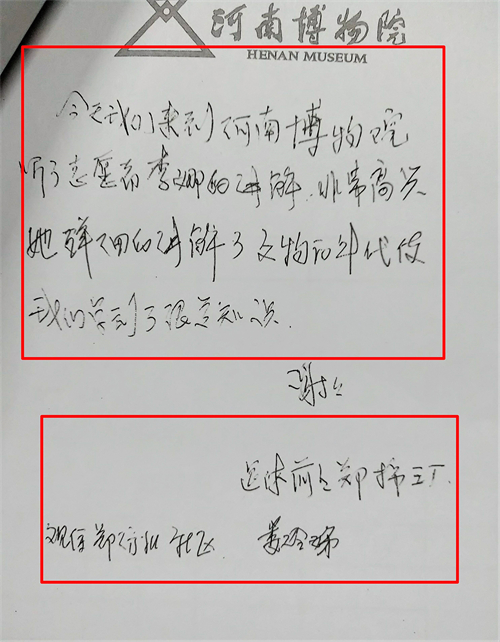 河南博物院
HENAN MUSEUM
今天我们来到河南博物院
听了志愿者李娜的讲解 非常高兴
她详细的讲解了文物的年代使
我们学到了很多知识.
谢谢
退休前在郑棉三厂.
现住郑纺机社区